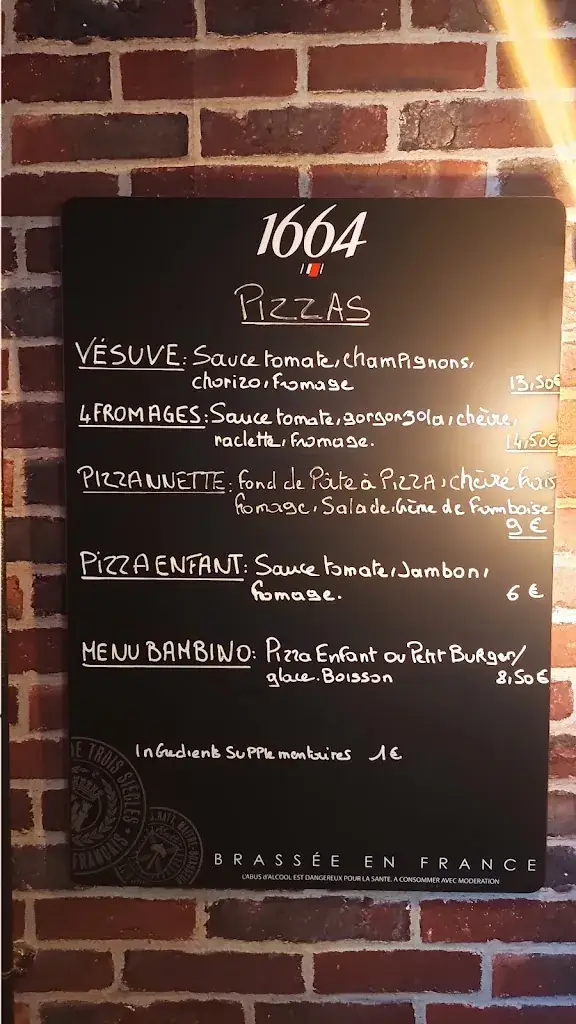 1664
PIZZAS
VÉSUVE: Sauce tomate, champignons,
chorizo, fromage 13,50€
4 FROMAGES: Sauce tomate, gorgonzola, chèvre,
raclette, fromage. 14,50€
PIZZANNETTE: Fond de Pâte à PIZZA, chèvre frais
fromage, Salade, Crème de Framboise
9 €
PIZZA ENFANT: Sauce tomate, Jambon,
fromage. 6 €
MENU BAMBINO: Pizza Enfant ou Petit Burger/
glace. Boisson 8,50€
Ingredients Supplementaires 1€
DE TROIS SIÈCLES
FRANÇAIS
BRASSÉE EN FRANCE
L'ABUS D'ALCOOL EST DANGEREUX POUR LA SANTE. A CONSOMMER AVEC MODERATION